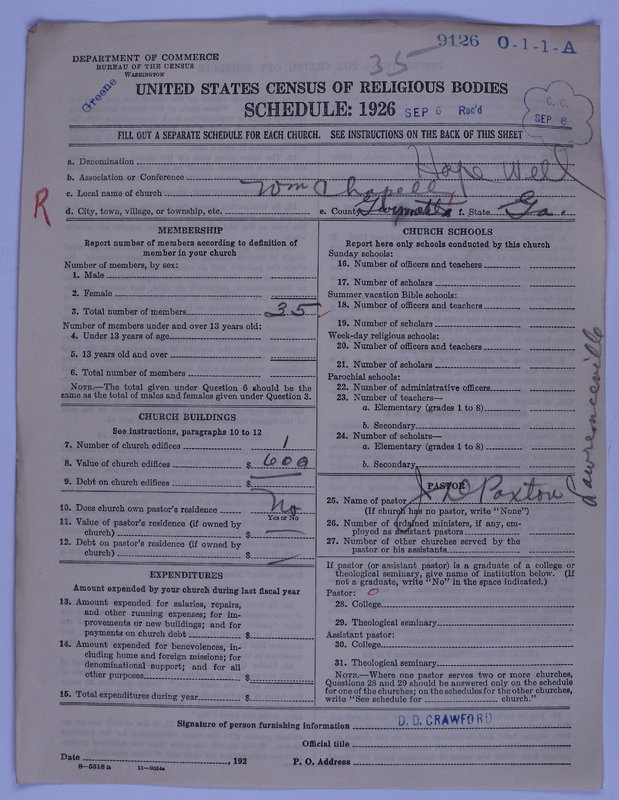 9126 O-1-1-A
35
DEPARTMENT OF COMMERCE
BUREAU OF THE CENSUS
WASHINGTON
Greene
UNITED STATES CENSUS OF RELIGIOUS BODIES
SCHEDULE: 1926 SEP 6 Rec'd
C. C.
SEP 6
FILL OUT A SEPARATE SCHEDULE FOR EACH CHURCH. SEE INSTRUCTIONS ON THE BACK OF THIS SHEET
a. Denomination
b. Association or Conference Hope Well
c. Local name of church Wm Chapell
d. City, town, village, or township, etc. e. County Gwinnett f. State Ga.
R
MEMBERSHIP
Report number of members according to definition of
member in your church
Number of members, by sex:
1. Male
2. Female
3. Total number of members 35
Number of members under and over 13 years old:
4. Under 13 years of age
5. 13 years old and over
6. Total number of members
NOTE.—The total given under Question 6 should be the
same as the total of males and females given under Question 3.
CHURCH BUILDINGS
See instructions, paragraphs 10 to 12
7. Number of church edifices 1
8. Value of church edifices $ 600
9. Debt on church edifices $
10. Does church own pastor's residence No
Yes or No
11. Value of pastor's residence (if owned by
church) $
12. Debt on pastor's residence (if owned by
church) $
EXPENDITURES
Amount expended by your church during last fiscal year
13. Amount expended for salaries, repairs,
and other running expenses; for im-
provements or new buildings; and for
payments on church debt $
14. Amount expended for benevolences, in-
cluding home and foreign missions; for
denominational support; and for all
other purposes $
15. Total expenditures during year $
CHURCH SCHOOLS
Report here only schools conducted by this church
Sunday schools:
16. Number of officers and teachers
17. Number of scholars
Summer vacation Bible schools:
18. Number of officers and teachers
19. Number of scholars
Week-day religious schools:
20. Number of officers and teachers
21. Number of scholars
Parochial schools:
22. Number of administrative officers
23. Number of teachers—
a. Elementary (grades 1 to 8)
b. Secondary
24. Number of scholars—
a. Elementary (grades 1 to 8)
b. Secondary
PASTOR
25. Name of pastor J D Paxton
(If church has no pastor, write "None")
26. Number of ordained ministers, if any, em-
ployed as assistant pastors
27. Number of other churches served by the
pastor or his assistants
Lawrenceville
If pastor (or assistant pastor) is a graduate of a college or
theological seminary, give name of institution below. (If
not a graduate, write "No" in the space indicated.)
Pastor: 0
28. College
29. Theological seminary
Assistant pastor:
30. College
31. Theological seminary
NOTE.—Where one pastor serves two or more churches,
Questions 28 and 29 should be answered only on the schedule
for one of the churches; on the schedules for the other churches,
write "See schedule for church."
Signature of person furnishing information D. D. CRAWFORD
Official title
Date , 192 P. O. Address
8—5518 a 11—9054a